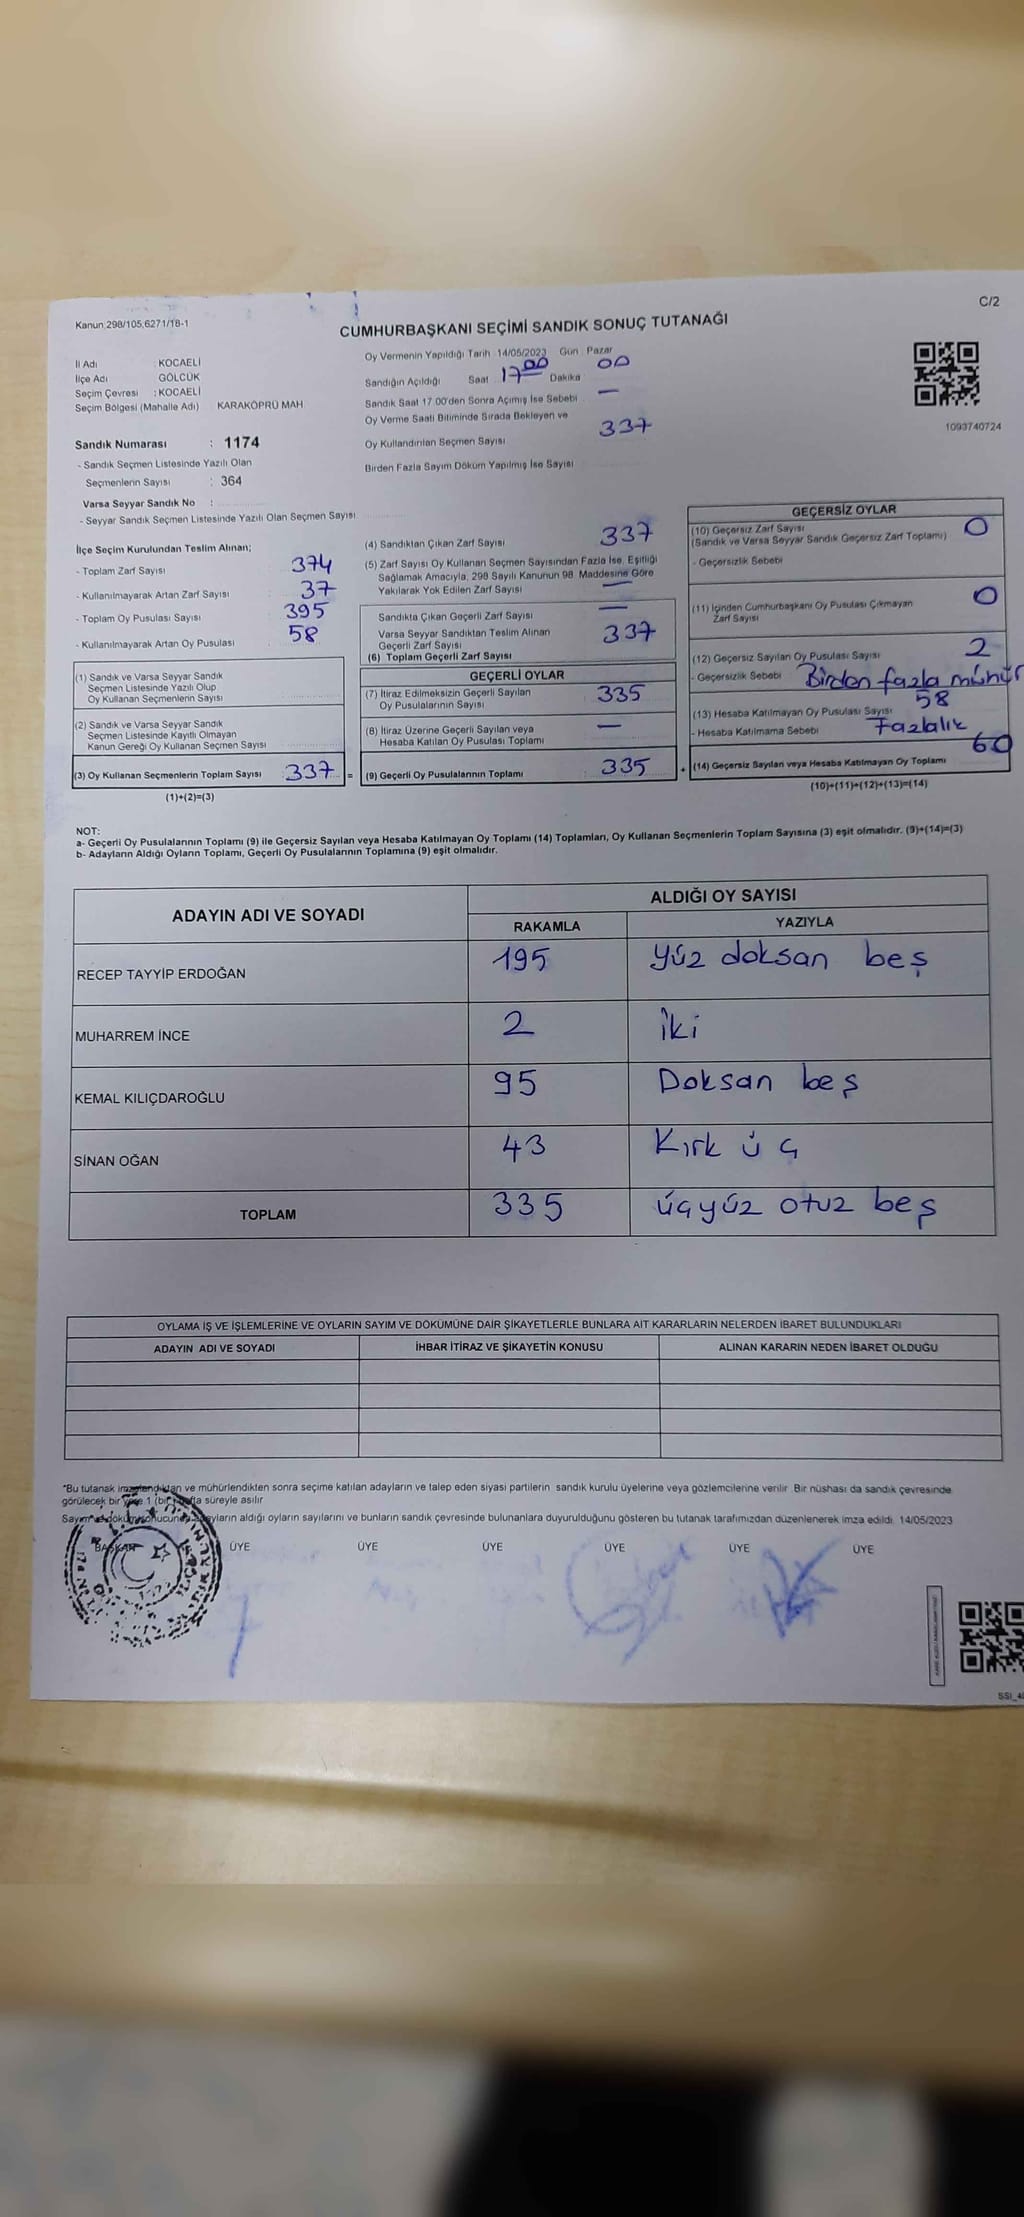 Kanun:298/105,6271/18-1
C/2
CUMHURBAŞKANI SEÇİMİ SANDIK SONUÇ TUTANAĞI
İl Adı : KOCAELİ
İlçe Adı GÖLCÜK
Seçim Çevresi : KOCAELİ
Seçim Bölgesi (Mahalle Adı) KARAKÖPRÜ MAH.
Sandık Numarası : 1174
- Sandık Seçmen Listesinde Yazılı Olan
Seçmenlerin Sayısı : 364
Varsa Seyyar Sandık No :
- Seyyar Sandık Seçmen Listesinde Yazılı Olan Seçmen Sayısı
Oy Vermenin Yapıldığı Tarih 14/05/2023 Gün Pazar
Sandığın Açıldığı Saat 17 00 Dakika 00
Sandık Saat 17.00'den Sonra Açımış İse Sebebi —
Oy Verme Saati Bitiminde Sırada Bekleyen ve
Oy Kullandırılan Seçmen Sayısı 337
Birden Fazla Sayım Döküm Yapılmış İse Sayısı
1093740724
İlçe Seçim Kurulundan Teslim Alınan;
- Toplam Zarf Sayısı 374
- Kullanılmayarak Artan Zarf Sayısı 37
- Toplam Oy Pusulası Sayısı 395
- Kullanılmayarak Artan Oy Pusulası 58
(1) Sandık ve Varsa Seyyar Sandık
Seçmen Listesinde Yazılı Olup
Oy Kullanan Seçmenlerin Sayısı
(2) Sandık ve Varsa Seyyar Sandık
Seçmen Listesinde Kayıtlı Olmayan
Kanun Gereği Oy Kullanan Seçmen Sayısı
(3) Oy Kullanan Seçmenlerin Toplam Sayısı 337 =
(1)+(2)=(3)
(4) Sandıktan Çıkan Zarf Sayısı 337
(5) Zarf Sayısı Oy Kullanan Seçmen Sayısından Fazla İse, Eşitliği
Sağlamak Amacıyla, 298 Sayılı Kanunun 98. Maddesine Göre
Yakılarak Yok Edilen Zarf Sayısı —
Sandıkta Çıkan Geçerli Zarf Sayısı —
Varsa Seyyar Sandıktan Teslim Alınan
Geçerli Zarf Sayısı 337
(6) Toplam Geçerli Zarf Sayısı
GEÇERLİ OYLAR
(7) İtiraz Edilmeksizin Geçerli Sayılan
Oy Pusulalarının Sayısı 335
(8) İtiraz Üzerine Geçerli Sayılan veya
Hesaba Katılan Oy Pusulası Toplamı —
(9) Geçerli Oy Pusulalarının Toplamı 335 +
GEÇERSİZ OYLAR
(10) Geçersiz Zarf Sayısı 0
(Sandık ve Varsa Seyyar Sandık Geçersiz Zarf Toplamı)
- Geçersizlik Sebebi
(11) İçinden Cumhurbaşkanı Oy Pusulası Çıkmayan 0
Zarf Sayısı
(12) Geçersiz Sayılan Oy Pusulası Sayısı 2
- Geçersizlik Sebebi Birden fazla mühür
(13) Hesaba Katılmayan Oy Pusulası Sayısı 58
- Hesaba Katılmama Sebebi Fazlalık
(14) Geçersiz Sayılan veya Hesaba Katılmayan Oy Toplamı 60
(10)+(11)+(12)+(13)=(14)
NOT:
a- Geçerli Oy Pusulalarının Toplamı (9) ile Geçersiz Sayılan veya Hesaba Katılmayan Oy Toplamı (14) Toplamları, Oy Kullanan Seçmenlerin Toplam Sayısına (3) eşit olmalıdır. (9)+(14)=(3)
b- Adayların Aldığı Oyların Toplamı, Geçerli Oy Pusulalarının Toplamına (9) eşit olmalıdır.
ADAYIN ADI VE SOYADI ALDIĞI OY SAYISI
RAKAMLA YAZIYLA
RECEP TAYYİP ERDOĞAN 195 yüz doksan beş
MUHARREM İNCE 2 iki
KEMAL KILIÇDAROĞLU 95 Doksan beş
SİNAN OĞAN 43 Kırk üç
TOPLAM 335 üçyüz otuz beş
OYLAMA İŞ VE İŞLEMLERİNE VE OYLARIN SAYIM VE DÖKÜMÜNE DAİR ŞİKAYETLERLE BUNLARA AİT KARARLARIN NELERDEN İBARET BULUNDUKLARI
ADAYIN ADI VE SOYADI İHBAR İTİRAZ VE ŞİKAYETİN KONUSU ALINAN KARARIN NEDEN İBARET OLDUĞU
*Bu tutanak imzalandıktan ve mühürlendikten sonra seçime katılan adayların ve talep eden siyasi partilerin sandık kurulu üyelerine veya gözlemcilerine verilir. Bir nüshası da sandık çevresinde
görülecek bir yere 1 (bir) hafta süreyle asılır
Sayım ve döküm sonucunda adayların aldığı oyların sayılarını ve bunların sandık çevresinde bulunanlara duyurulduğunu gösteren bu tutanak tarafımızdan düzenlenerek imza edildi. 14/05/2023
BAŞKAN ÜYE ÜYE ÜYE ÜYE ÜYE ÜYE